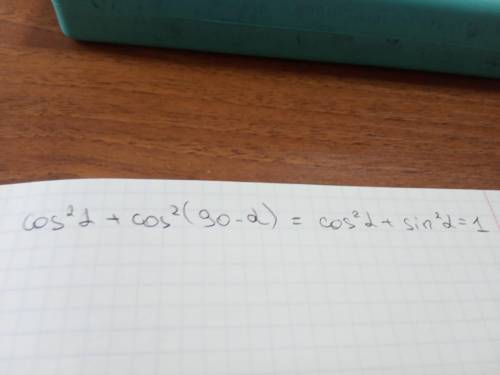 cos²α + cos²(90-α) = cos²α + sin²α = 1